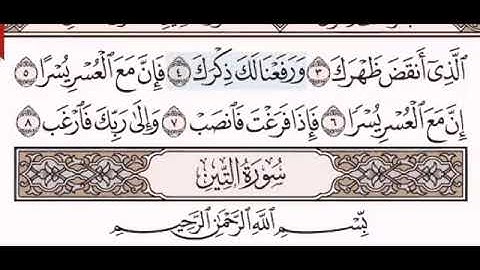 ٱلَّذِىٓ أَنقَضَ ظَهْرَكَ ٣ وَرَفَعْنَا لَكَ ذِكْرَكَ ٤ فَإِنَّ مَعَ ٱلْعُسْرِ يُسْرًا ٥
إِنَّ مَعَ ٱلْعُسْرِ يُسْرًا ٦ فَإِذَا فَرَغْتَ فَٱنصَبْ ٧ وَإِلَىٰ رَبِّكَ فَٱرْغَب ٨
سُورَةُ ٱلتِّينِ
بِسْمِ ٱللَّهِ ٱلرَّحْمَٰنِ ٱلرَّحِيمِ